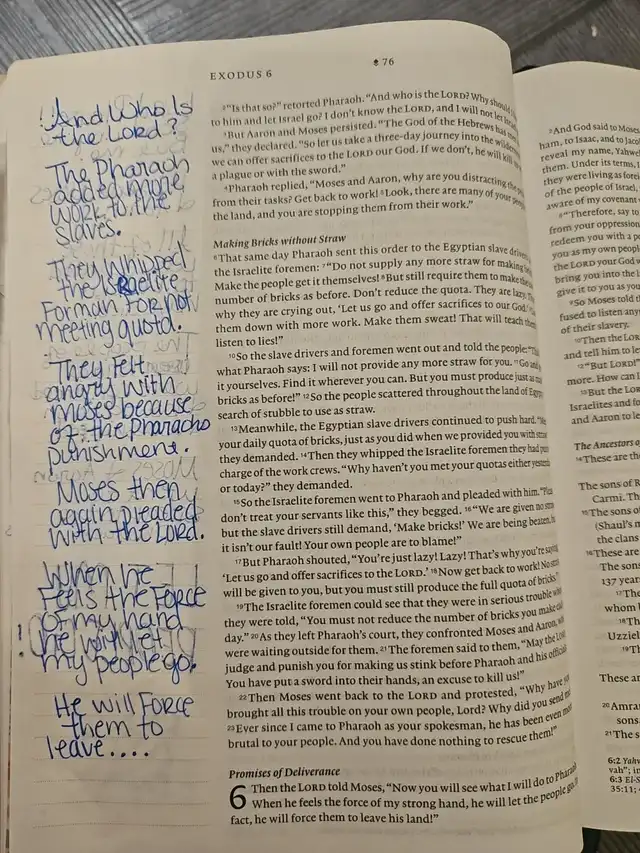 EXODUS 6
76
! And Who Is
the Lord?
The Pharaoh
added more
work to the
slaves.
They whipped
the Israelite
Forman For not
meeting quota.
They Felt
angry with
Moses because
of the Pharaohs
punishment.
Moses then
again pleaded
with the Lord.
When he
Feels the Force
of my hand
! he will let
my people go.
He will Force
them to
leave....
2"Is that so?" retorted Pharaoh. "And who is the LORD? Why should
to him and let Israel go? I don't know the LORD, and I will not let
3But Aaron and Moses persisted. "The God of the Hebrews has
us," they declared. "So let us take a three-day journey into the
we can offer sacrifices to the LORD our God. If we don't, he will kill
a plague or with the sword."
4Pharaoh replied, "Moses and Aaron, why are you distracting the
from their tasks? Get back to work! 5Look, there are many of your
the land, and you are stopping them from their work."
Making Bricks without Straw
6That same day Pharaoh sent this order to the Egyptian slave
the Israelite foremen: 7"Do not supply any more straw for making
Make the people get it themselves! 8But still require them to make the
number of bricks as before. Don't reduce the quota. They are lazy.
why they are crying out, 'Let us go and offer sacrifices to our God.'
them down with more work. Make them sweat! That will teach them
listen to lies!"
10So the slave drivers and foremen went out and told the people:
what Pharaoh says: I will not provide any more straw for you. 11Go and
it yourselves. Find it wherever you can. But you must produce just as
bricks as before!" 12So the people scattered throughout the land of
search of stubble to use as straw.
13Meanwhile, the Egyptian slave drivers continued to push hard.
your daily quota of bricks, just as you did when we provided you with
they demanded. 14Then they whipped the Israelite foremen they had
charge of the work crews. "Why haven't you met your quotas either
or today?" they demanded.
15So the Israelite foremen went to Pharaoh and pleaded with him.
don't treat your servants like this," they begged. 16"We are given no
but the slave drivers still demand, 'Make bricks!' We are being beaten,
it isn't our fault! Your own people are to blame!"
17But Pharaoh shouted, "You're just lazy! Lazy! That's why you're
'Let us go and offer sacrifices to the LORD.' 18Now get back to work! No
will be given to you, but you must still produce the full quota of bricks."
19The Israelite foremen could see that they were in serious trouble
they were told, "You must not reduce the number of bricks you make
day." 20As they left Pharaoh's court, they confronted Moses and Aaron,
were waiting outside for them. 21The foremen said to them, "May the
judge and punish you for making us stink before Pharaoh and his
You have put a sword into their hands, an excuse to kill us!"
22Then Moses went back to the LORD and protested, "Why have
brought all this trouble on your own people, Lord? Why did you send
23Ever since I came to Pharaoh as your spokesman, he has been even
brutal to your people. And you have done nothing to rescue them!"
Promises of Deliverance
6 Then the LORD told Moses, "Now you will see what I will do to Pharaoh.
When he feels the force of my strong hand, he will let the people go.
fact, he will force them to leave his land!"
2And God said to Moses,
ham, to Isaac, and to
reveal my name, Yahweh
them. Under its terms, I
they were living as
of the people of Israel,
aware of my covenant
6"Therefore, say to
from your oppression
redeem you with a
you as my own people
the LORD your God
bring you into the
give it to you as your
9So Moses told
fused to listen any
of their slavery.
10Then the LORD
and tell him to
12"But LORD!"
more. How can I
13But the LORD
Israelites and for
and Aaron to
The Ancestors of
14These are the
The sons of
Carmi. These
15The sons of
(Shaul's
the clans
16These are
The sons
137 years
17The
whom
18The
Uzziel
19The
These are
20Amram
sons.
21The s
6:2 Yahweh
vah"; in
6:3 El-S
35:11;